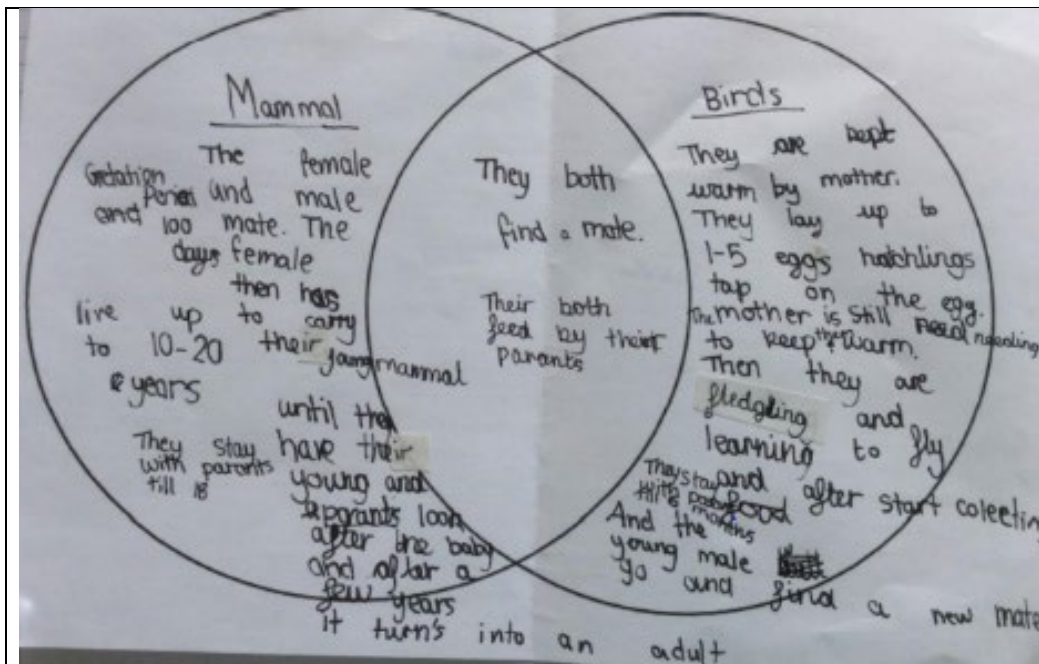 Mammal
The female
and male
mate. The
female
then has
to carry
their young mammal
until they
have their
young and
parants look
after the baby
and after a
few years
it turn's into an adult
Gretation
Period
and 100
days
live up to
to 10-20
years
They stay
with parents
till 18
They both
find a mate.
Their both
feed by their
parants
Birds
They are kept
warm by mother.
They lay up to
1-5 eggs hatchlings
tap on the egg.
The mother is still needing
to keep them warm.
Then they are
fledgling and
learning to fly
and after start colecting
food
They stay
months
And the
young male
go and find a new mate